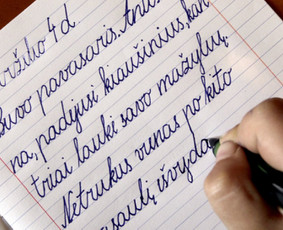 4 d.
Buvo pavasaris. Anu
na, padėjusi kiaušinius, kan
triai laukė savo mažylių.
Netrukus vienas po kito
saulę išvydo